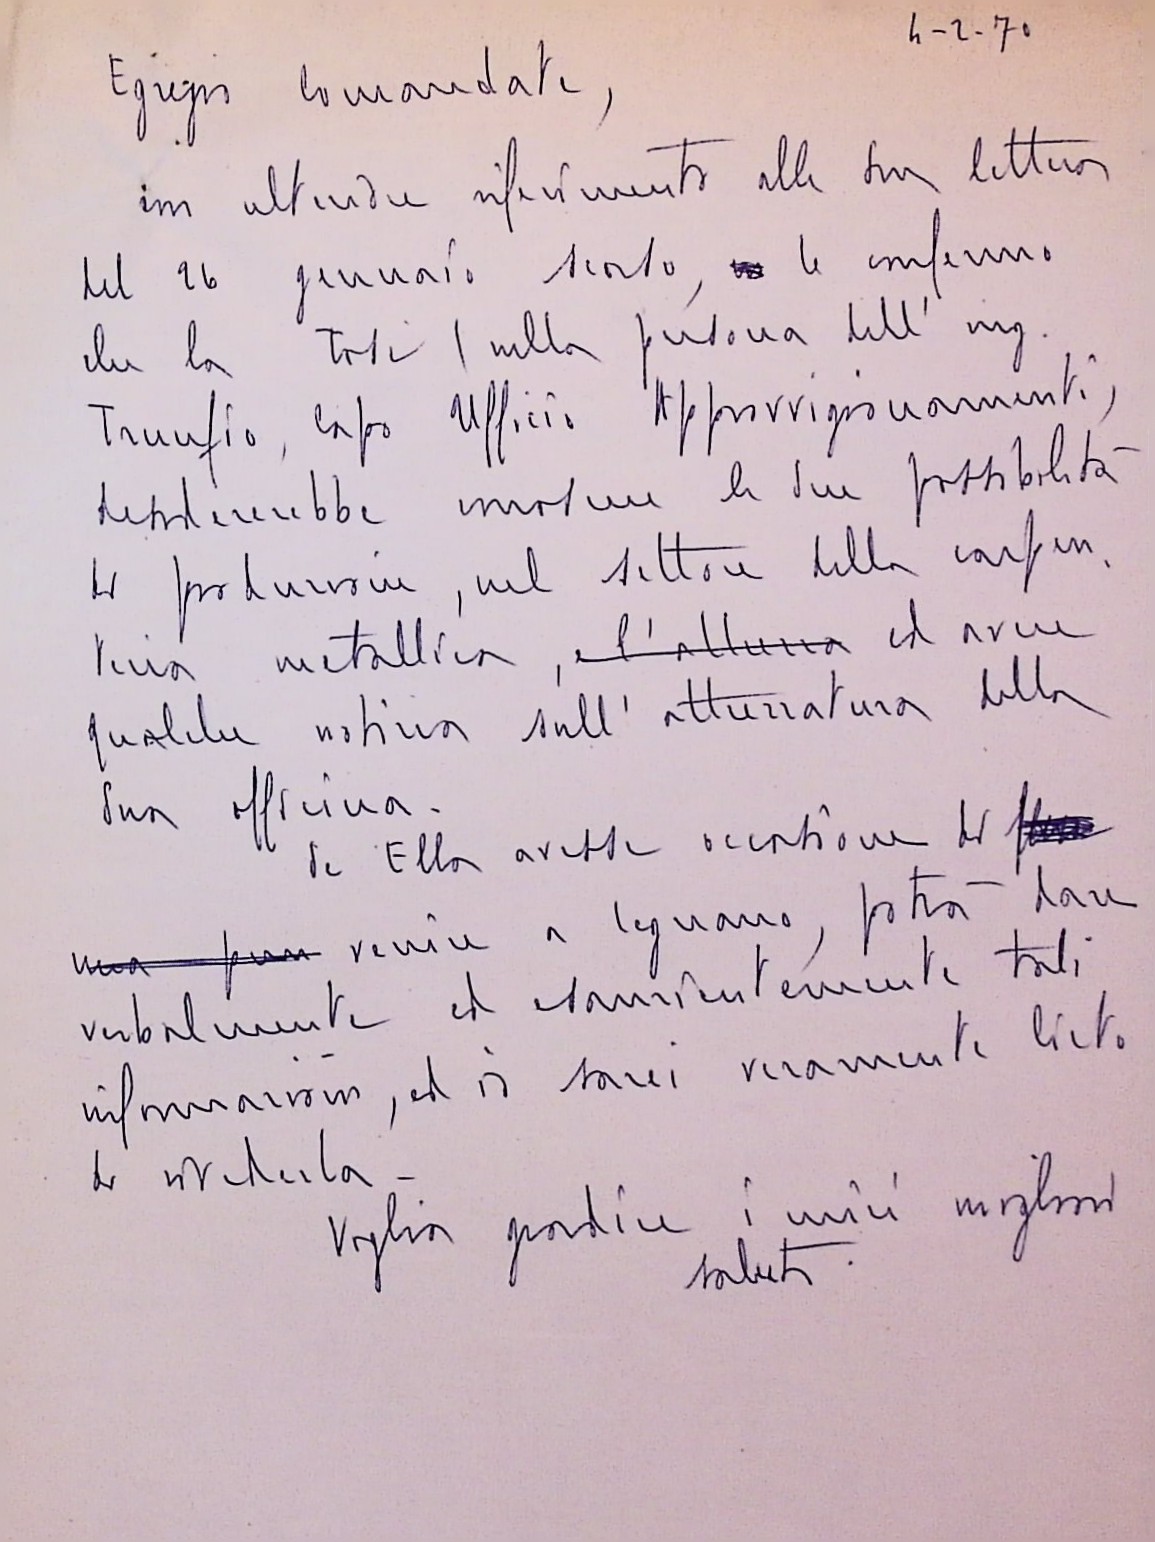 4-2-70
Egregio Comandate,
in ulteriore riferimento alla Sua lettera
del 26 gennaio scorso, le confermo
che la Tosi (nella persona dell'ing.
Trunfio, Capo Ufficio Approvvigionamenti,
desidererebbe conoscere le Sue possibilità
di produzione, nel settore della carpen.
teria metallica, e l'attrezza ed avere
qualche notizia sull'attrezzatura della
Sua officina.
Se Ella avesse occasione di
una venire a Legnano, potrà dare
verbalmente ed esaurientemente tali
informazioni, ed io sarei veramente lieto
di rivederla -
Voglia gradire i miei migliori
saluti.